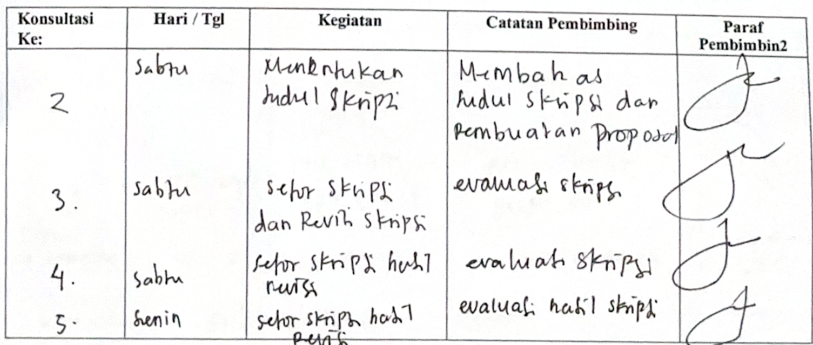 Konsultasi Ke: Hari / Tgl Kegiatan Catatan Pembimbing Paraf Pembimbin2
2 Sabtu Menentukan Judul Skripsi Membahas Judul Skripsi dan Pembuatan Proposal
3. Sabtu Setor Skripsi dan Revisi Skripsi evaluasi skripsi
4. Sabtu Setor Skripsi hasil revisi evaluasi Skripsi
5. Senin setor skripsi hasil Revisi evaluasi hasil skripsi